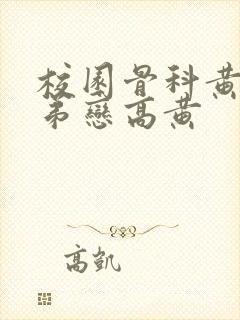 校園骨科黃
弟戀高黃
高凱